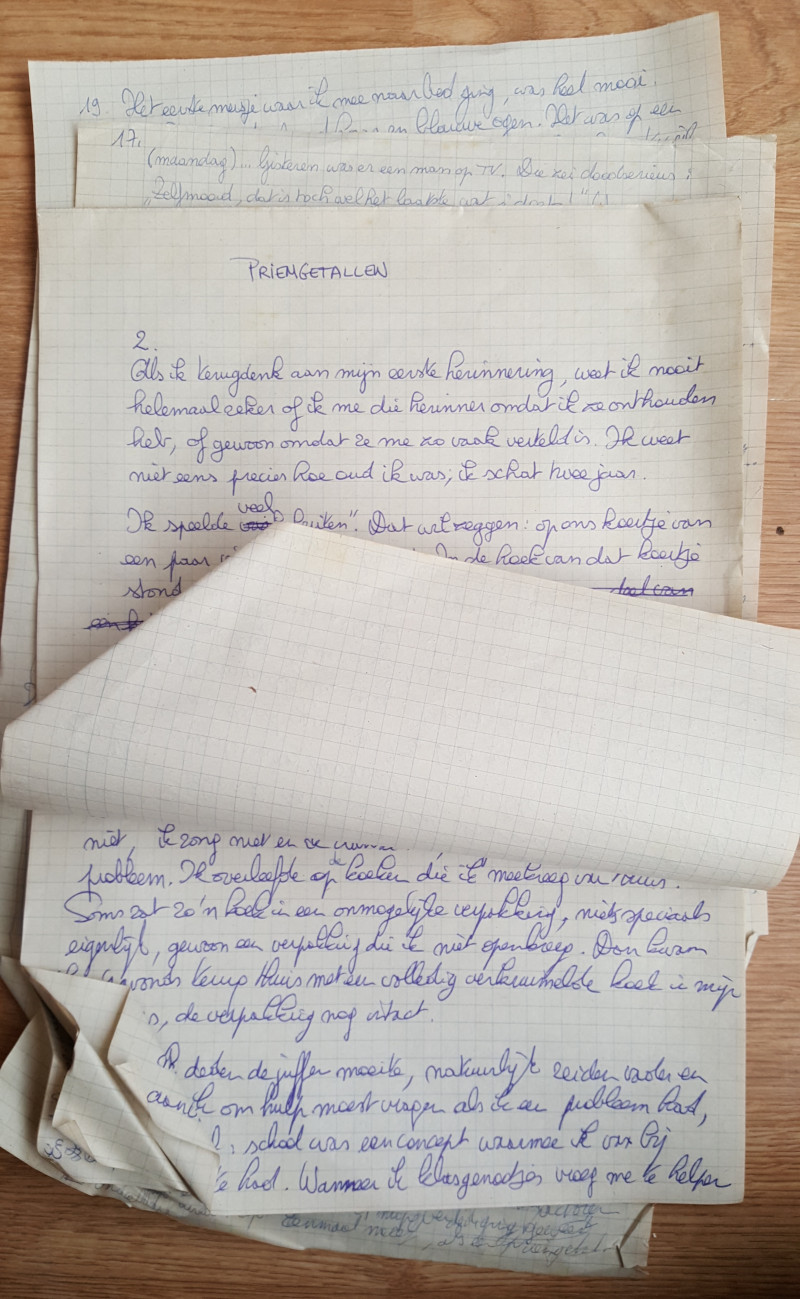 19. Het eerste meisje waar ik mee naar bed ging, was heel mooi.
en blauwe ogen. Het was op een
17.
(maandag)... Gisteren was er een man op TV. Die zei doodserieus:
"Zelfmoord, dat is toch wel het laatste wat
PRIEMGETALLEN
2.
Als ik terugdenk aan mijn eerste herinnering, weet ik nooit
helemaal zeker of ik me die herinner omdat ik ze onthouden
heb, of gewoon omdat ze me zo vaak verteld is. Ik weet
niet eens precies hoe oud ik was; ik schat twee jaar.
Ik speelde veel buiten". Dat wil zeggen: op ons koertje van
een paar de hoek van dat koertje
stond
niet, ik zong niet en
probleem. Ik overleefde op de koeken die ik meekreeg van thuis.
Soms zat zo'n koek in een onmogelijke verpakking, niets speciaals
eigenlijk, gewoon een verpakking die ik niet openkreeg. Dan kwam
avonds terug thuis met een volledig verkruimelde koek in mijn
de verpakking nog intact.
deden de juffen moeite, natuurlijk zeiden vader en
ik om hulp moest vragen als ik een probleem had,
school was een concept waarmee ik
had. Wanneer ik klasgenootjes vroeg me te helpen